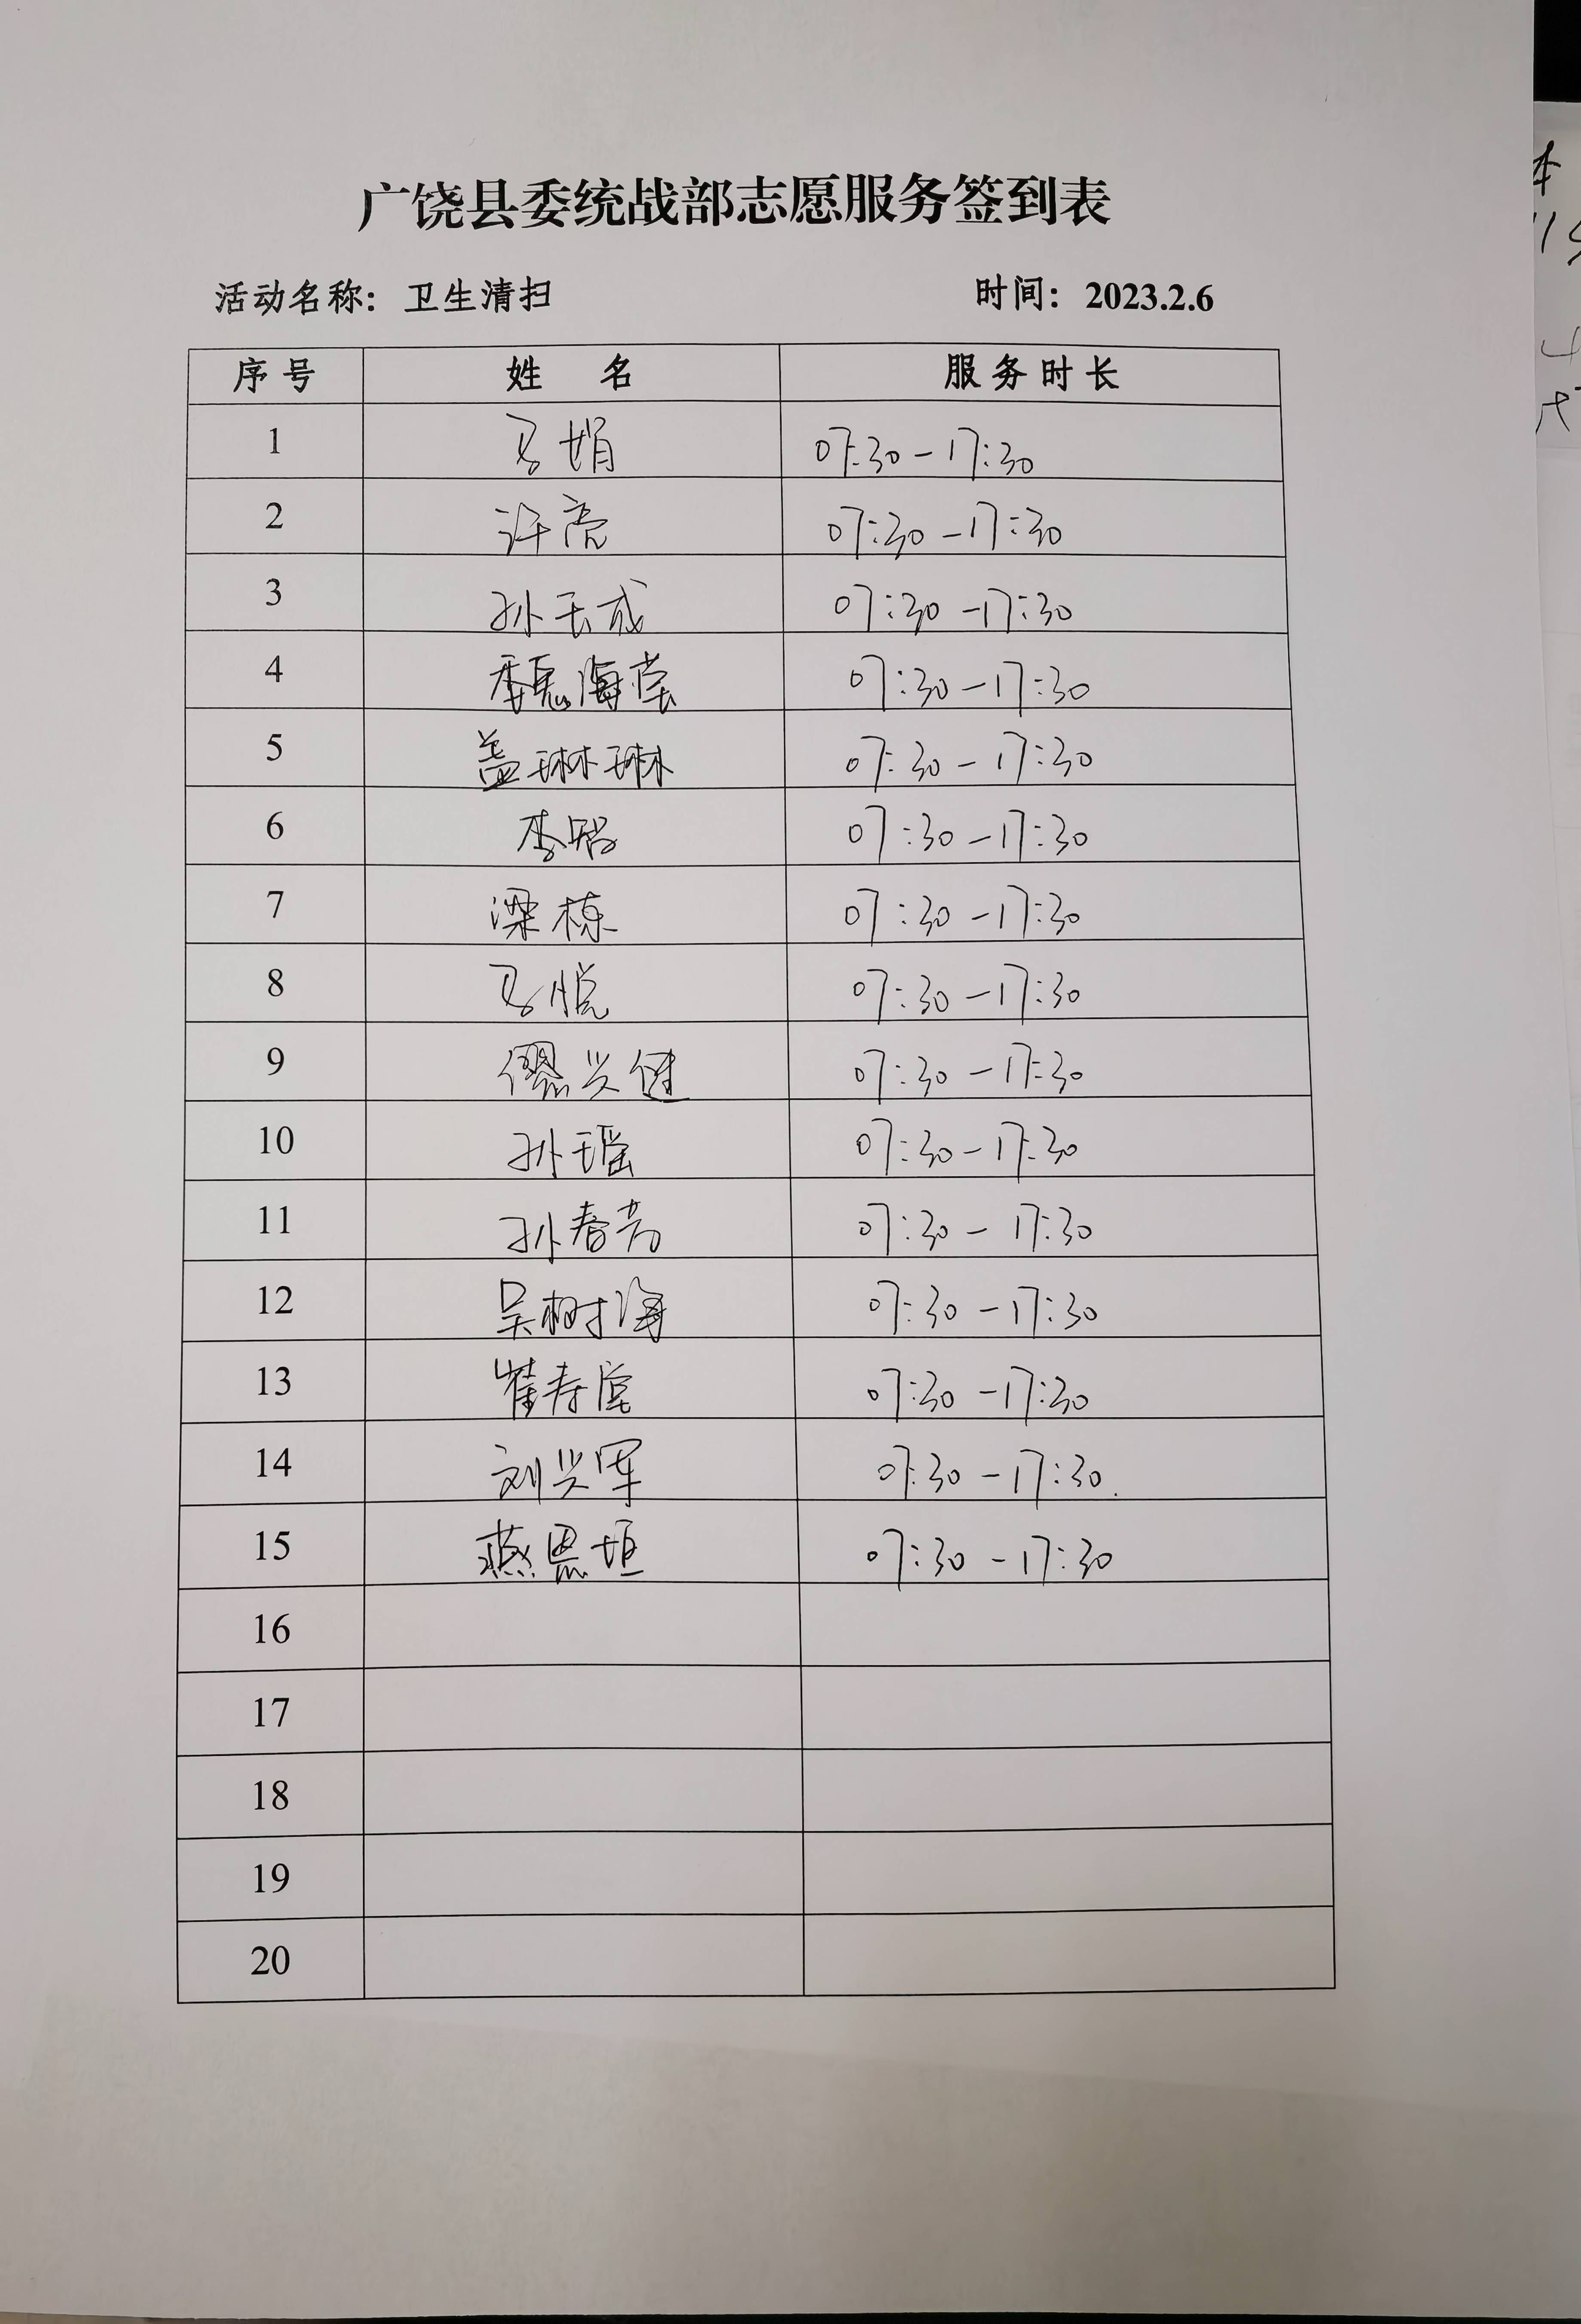 广饶县委统战部志愿服务签到表
活动名称：卫生清扫 时间：2023.2.6
序号 姓 名 服务时长
1 马娟 07:30-17:30
2 许亮 07:30-17:30
3 孙天成 07:30-17:30
4 魏海棠 07:30-17:30
5 盖琳琳 07:30-17:30
6 李 07:30-17:30
7 梁栋 07:30-17:30
8 马悦 07:30-17:30
9 缪兴健 07:30-17:30
10 孙瑶 07:30-17:30
11 孙春芳 07:30-17:30
12 吴树海 07:30-17:30
13 崔寿 07:30-17:30
14 刘兴军 07:30-17:30.
15 燕恩垣 07:30-17:30
16
17
18
19
20